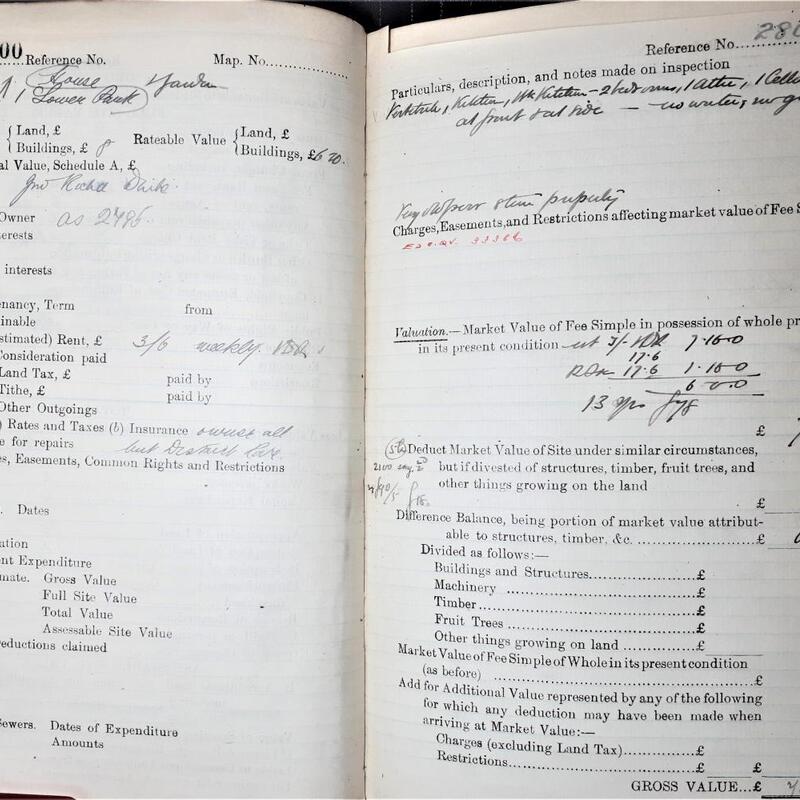 00 Reference No. Map. No.
House
1 Lower Bank
{ Land, £
{ Buildings, £ 8 Rateable Value { Land, £
{ Buildings, £
al Value, Schedule A, £
Owner as 2785.
terests
interests
nancy, Term from
inable
stimated) Rent, £ 3/6 weekly.
Consideration paid
Land Tax, £ paid by
Tithe, £ paid by
Other Outgoings
) Rates and Taxes (b) Insurance owner all
e for repairs but District
es, Easements, Common Rights and Restrictions
. Dates
ation
nt Expenditure
mate. Gross Value
Full Site Value
Total Value
Assessable Site Value
eductions claimed
ewers. Dates of Expenditure
Amounts
Reference No. 280
Particulars, description, and notes made on inspection
Kitchen, Wh Kitchen - 2 bedrooms, 1 Attic, 1 Cella
at front & at side — no water, no g
Very old poor stone property
Charges, Easements, and Restrictions affecting market value of Fee S
Valuation.—Market Value of Fee Simple in possession of whole pr
in its present condition
17.6
17.6 1.15.0
6.0.0
13 yrs £78
£
Deduct Market Value of Site under similar circumstances,
but if divested of structures, timber, fruit trees, and
other things growing on the land
£
Difference Balance, being portion of market value attribut-
able to structures, timber, &c. £
Divided as follows:—
Buildings and Structures £
Machinery £
Timber £
Fruit Trees £
Other things growing on land £
Market Value of Fee Simple of Whole in its present condition
(as before) £
Add for Additional Value represented by any of the following
for which any deduction may have been made when
arriving at Market Value:—
Charges (excluding Land Tax) £
Restrictions £ £
GROSS VALUE...£